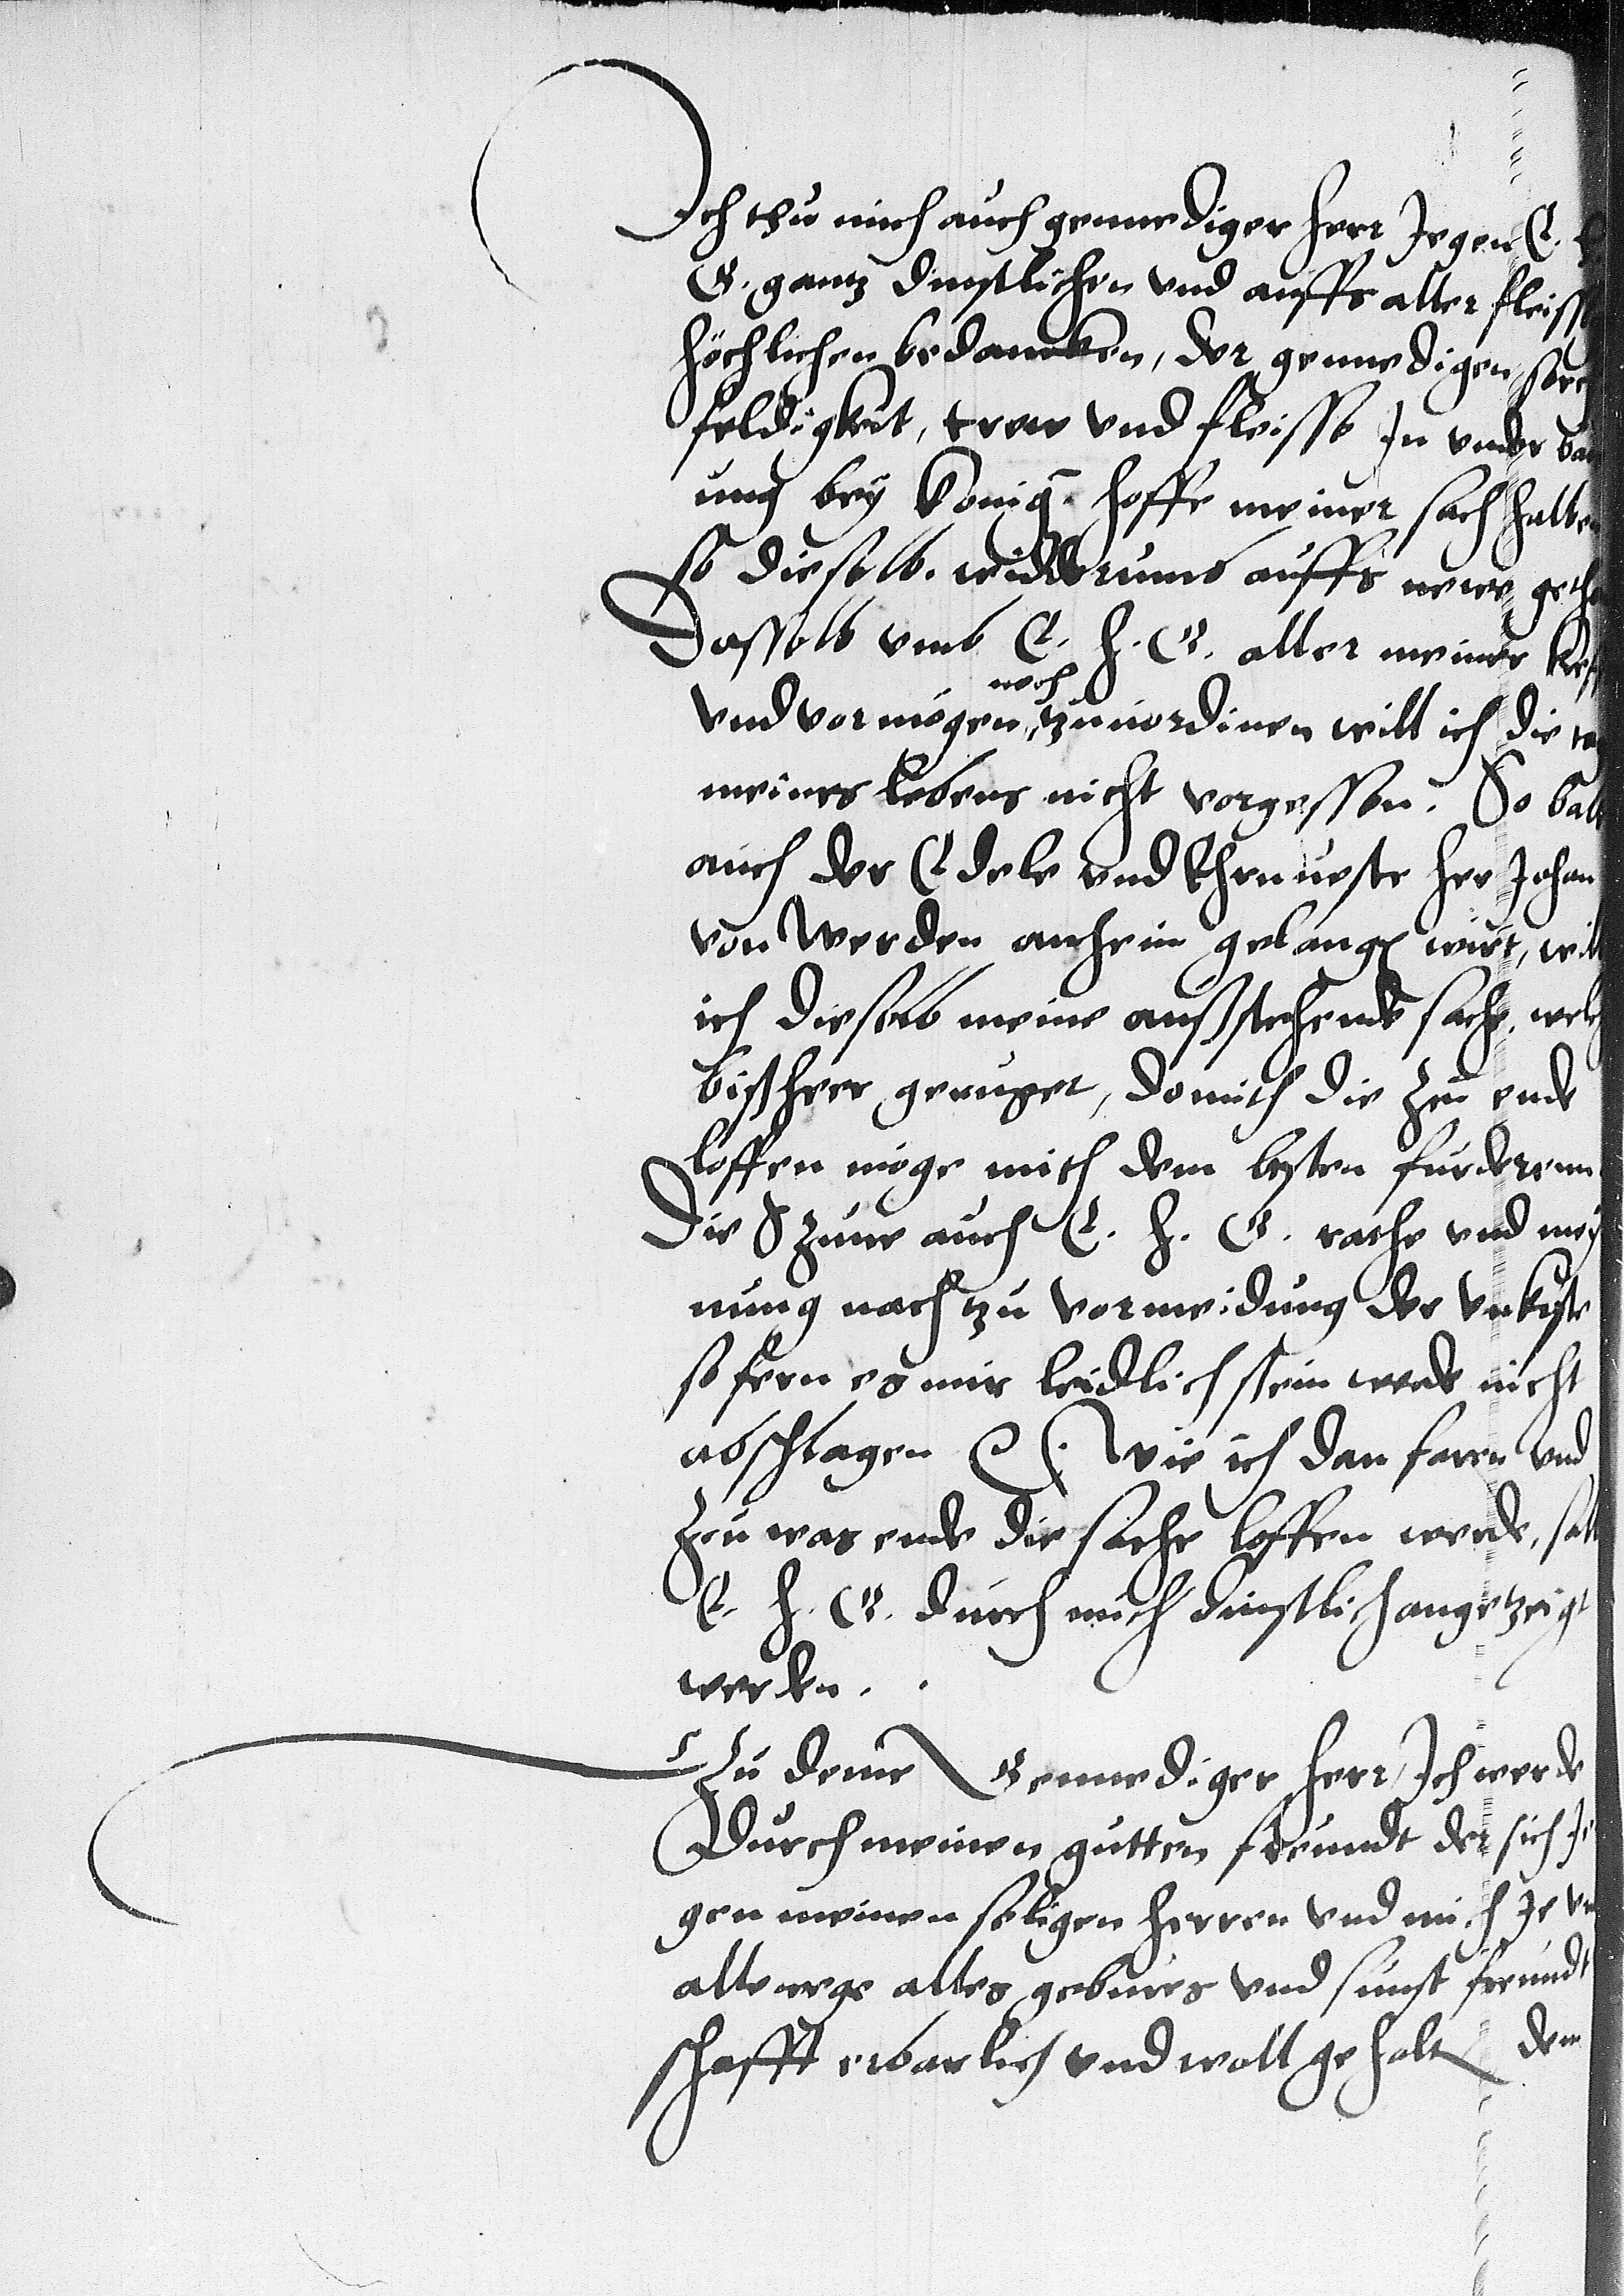 Ich thu mich auch gennediger herr Jegen E. h
G. gantz dinstlichen vnd auffs aller fleissi
höchlichen bedancken, der gennedigen sorg
feldigkeit, trew vnd fleisse In vnder bau
ung bey König. hoffe meiner sach halben
so dieselb. widderumb auffs newe geth
Dasselb vmb E. h. G. aller meiner kref
noch
vnd vormögen, zuuordinen will ich die tag
meines lebens nicht vorgessen. So balt
auch der Edele vnd Ehrnueste her Johan
von Werden anheim gelangen wirt, will
ich dieselb meine aussstehende sache, welch
bissheer geruget, domith die zu ende
loffen möge mith dem besten furderenn
Die Szune auch E. h. G. rathe vnd mey
nung nach tzu vormeidung der vnkoste
so fern es mir leidlich sein werde nicht
abschlagen Wie ich dan faren vnd
Zeu was ende die sache loffen werde, sall
E. h. G. durch mich dinstlich angetzeigt
werden.
Zu deme Gennediger herr, Ich werde
Durch meinen gutten freundt der sich Je
gen meinen seligen herren vnd mich Je vn
allewege alles gebures vnd sunst freundt
schafft erbarlich vnd woll gehalten dem